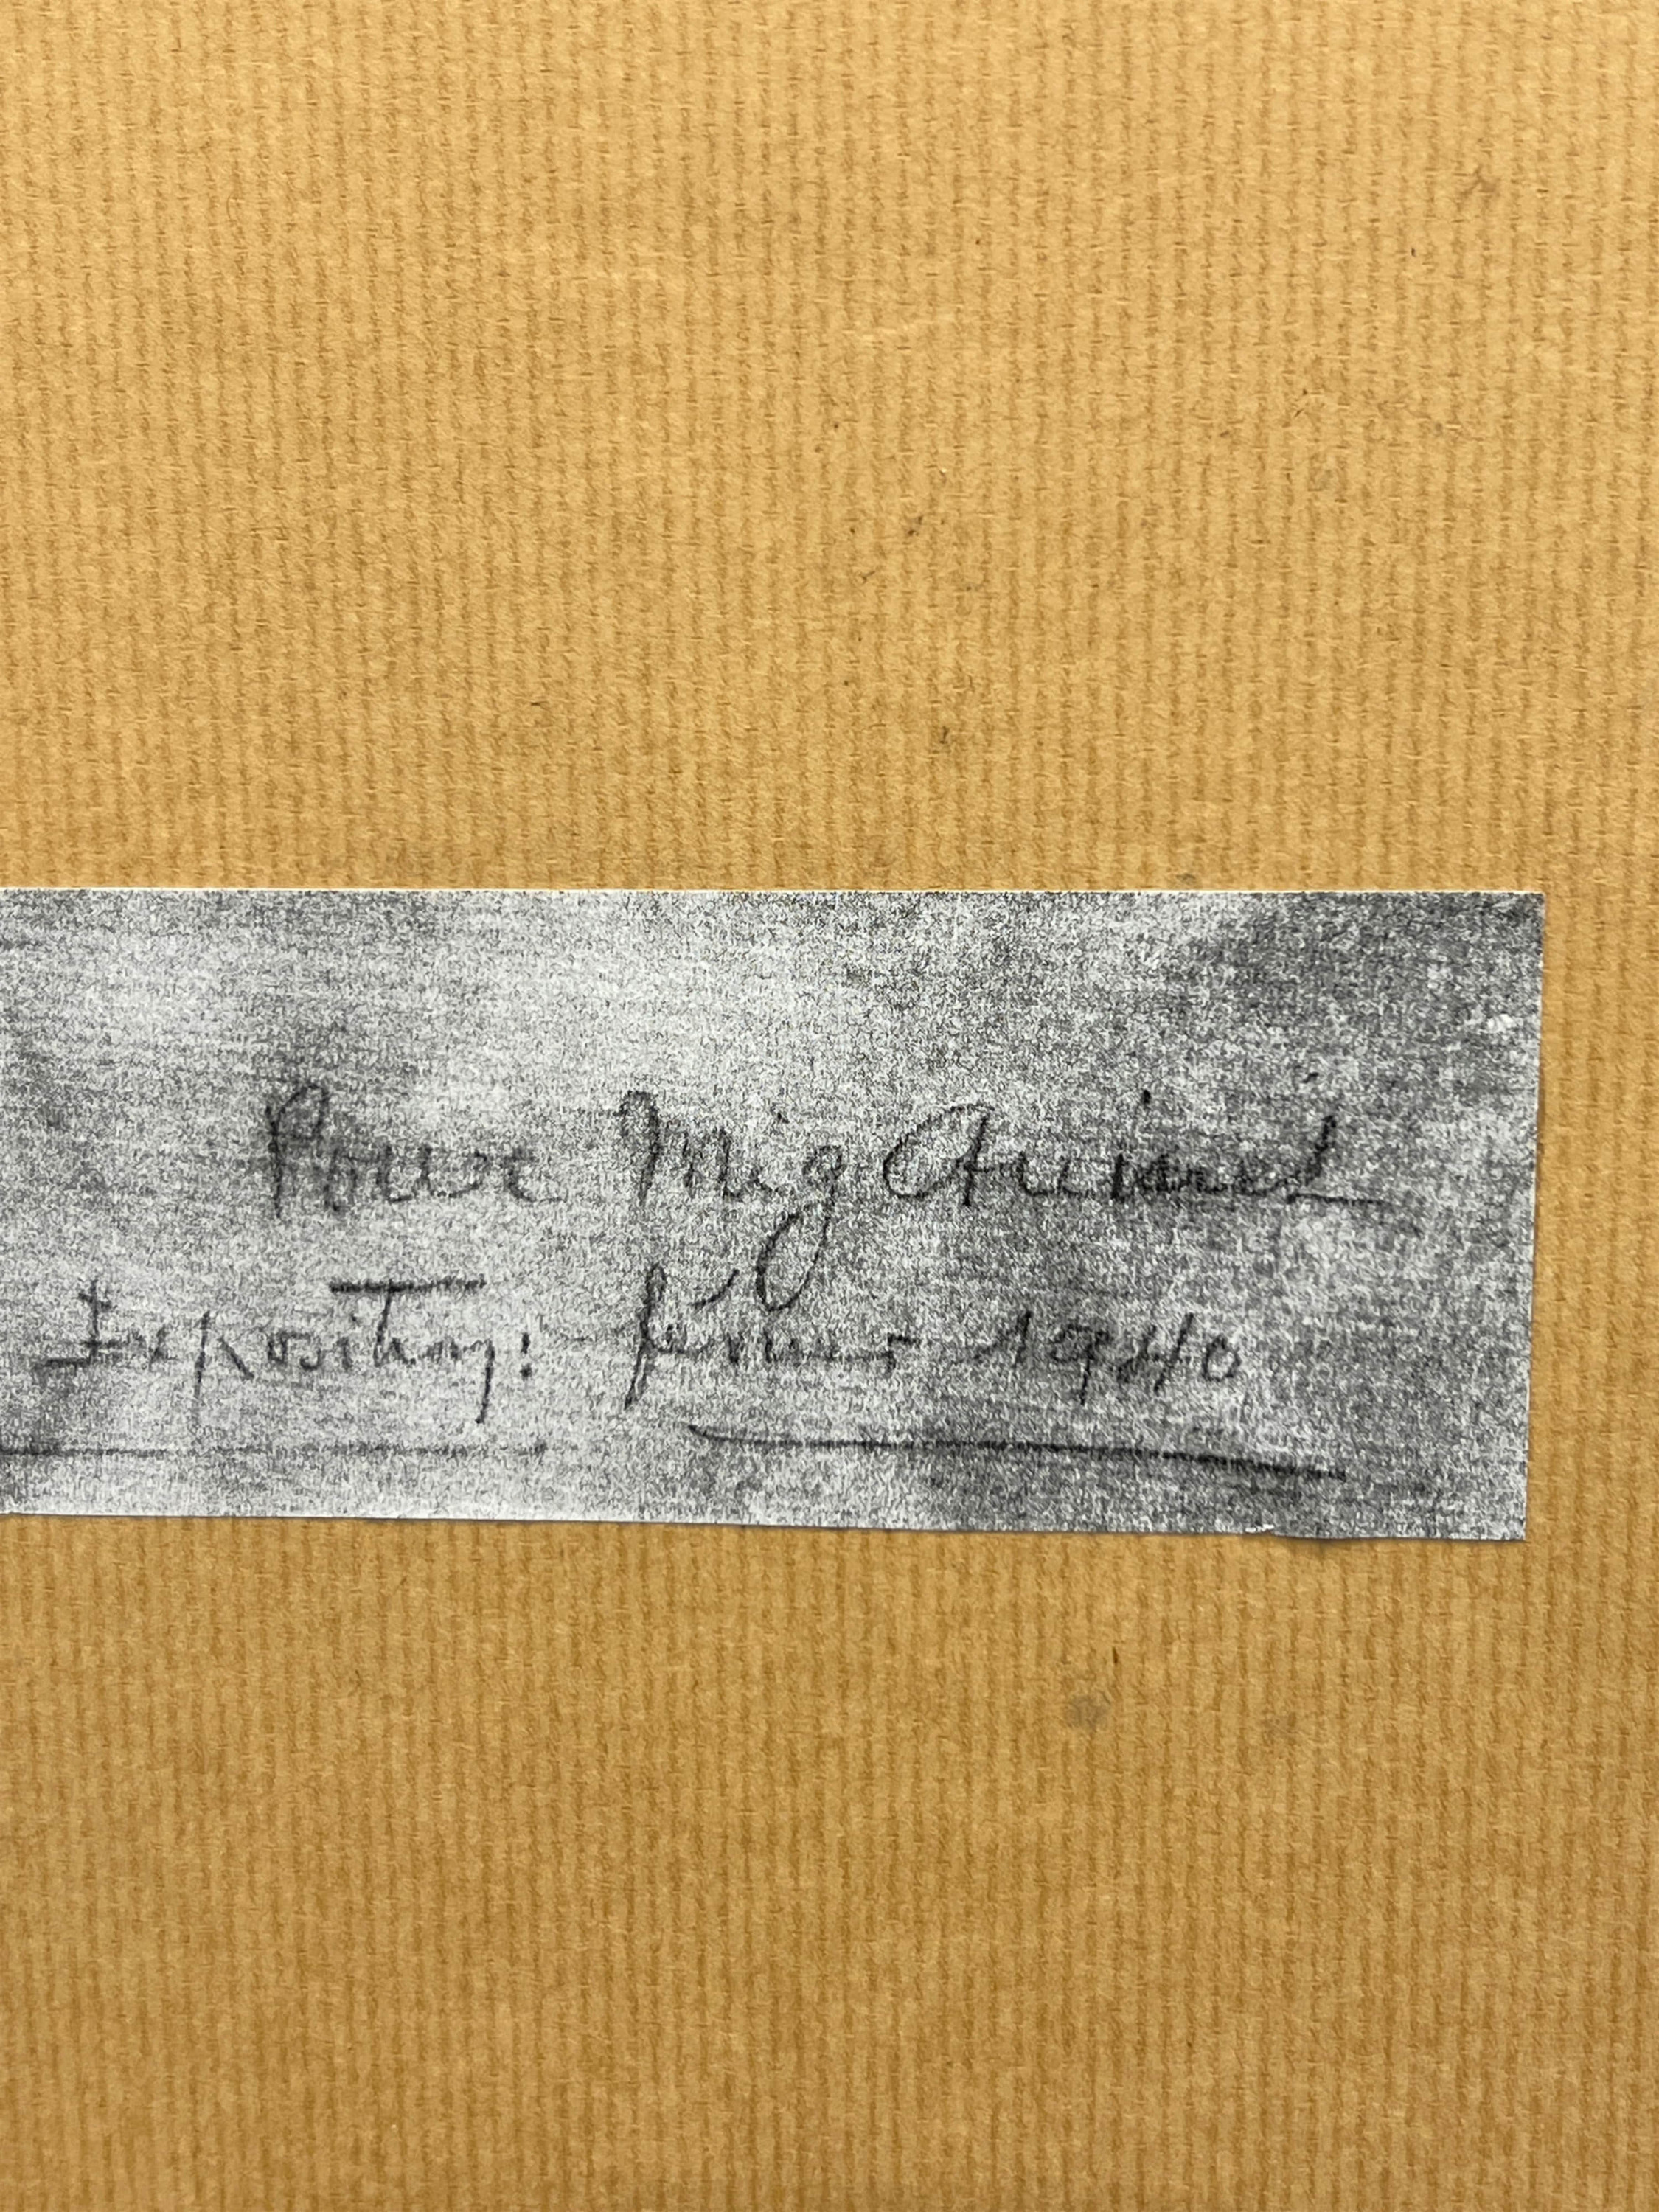 Pour Mig
Exposition: février 1940